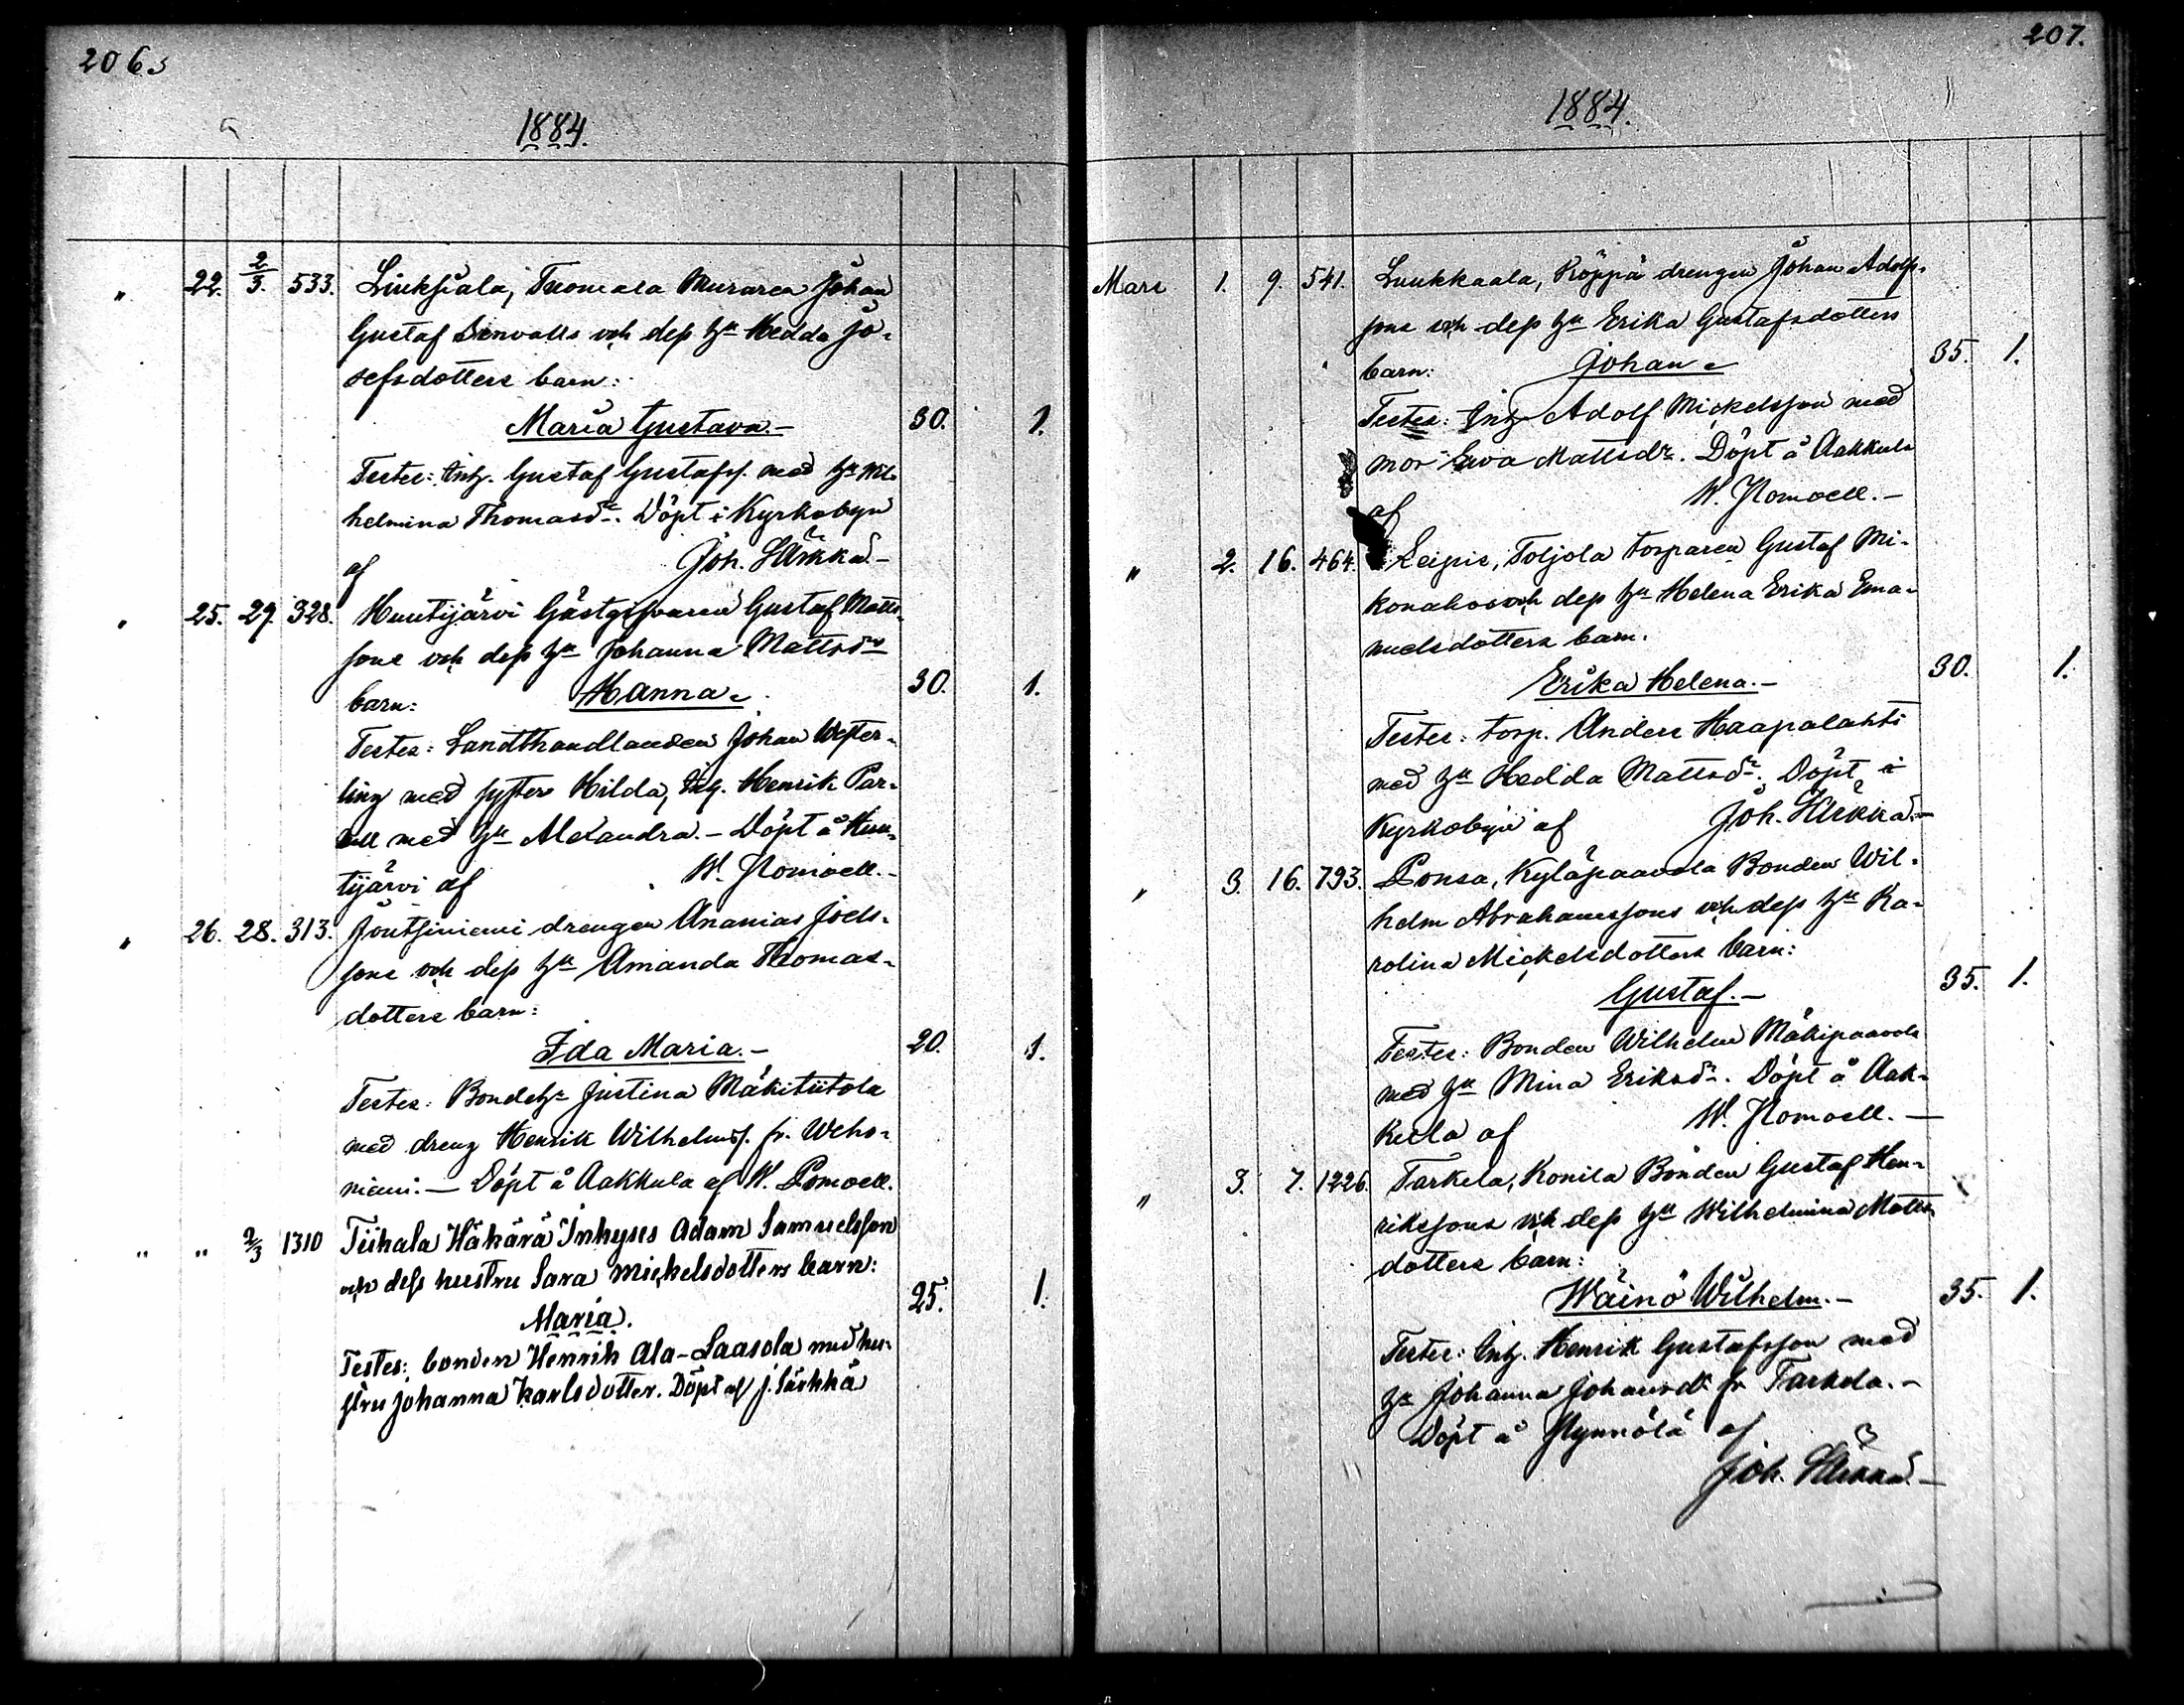 206.
1884.
" 22. 2/3. 533. Liuksiala, Tuomala Muraren Johan
Gustaf Denvalls och dess hu Hedda Jo-
sefsdotters barn:
Maria Gustava.— 30. 1.
Testes: Inh. Gustaf Gustafs. med hu Wil-
helmina Thomasdr. Döpt i Kyrkobyn
af Joh. Särkkä.—
" 25. 29. 328. Huutijärvi Gästgifvaren Gustaf Matts-
sons och dess hu Johanna Mattsdrs
barn: Hanna. 30. 1.
Testes: Landthandlanden Johan Wester-
ling med syster Hilda, Henrik Par-
med hu Alexandra.— Döpt å Huu-
tijärvi af W. Nomoell.—
" 26. 28. 313. Joutsiniemi drengen Ananias Joels-
sons och dess hu Amanda Thomas-
dotters barn:
Ida Maria.— 20. 1.
Testes: Bondehu Justina Mäkitiitola
med dreng Henrik Wilhelmss. fr. Weho-
niemi.— Döpt å Aakkula af W. Pomoell.
" " 2/3 1310 Tiihala Hähärä Inhyses Adam Samuelsson
och dess hustru Sara Mickelsdotters barn:
Maria. 25. 1.
Testes: bonden Henrik Ala-Laasola med hu-
stru Johanna Karlsdotter. Döpt af J. Särkkä
207.
1884.
Mars 1. 9. 541. Luukkaala, Röppä drengen Johan Adolfs-
sons och dess hu Erika Gustafsdotters
barn: Johan. 35. 1.
Testes: Inh. Adolf Mickelsson med
mor Eva Mattsdr. Döpt å Aakkula
af W. Nomoell.—
" 2. 16. 464. Leipis, Toljola torparen Gustaf Mi-
konahos och dess hu Helena Erika Ema-
nuelsdotters barn.
Erika Helena.— 30. 1.
Testes: torp. Anders Haapalahti
med hu Hedda Mattsdr. Döpt i
Kyrkobyn af Joh. Särkkä.—
" 3. 16. 793. Ponsa, Kyläpaavola Bonden Wil-
helm Abrahamssons och dess hu Ka-
rolina Mickelsdotters barn:
Gustaf.— 35. 1.
Testes: Bonden Wilhelm Mäkipaavola
med hu Mina Eriksdr. Döpt å Aak-
kula af W. Nomoell.—
" 3. 7. 1226. Tarkela, Konila Bonden Gustaf Hen-
rikssons och dess hu Wilhelmina Matts-
dotters barn:
Wäinö Wilhelm.— 35. 1.
Testes: Inh. Henrik Gustafsson med
hu Johanna Johansdr fr Tarkela.—
Döpt å af
Joh. Särkkä.—